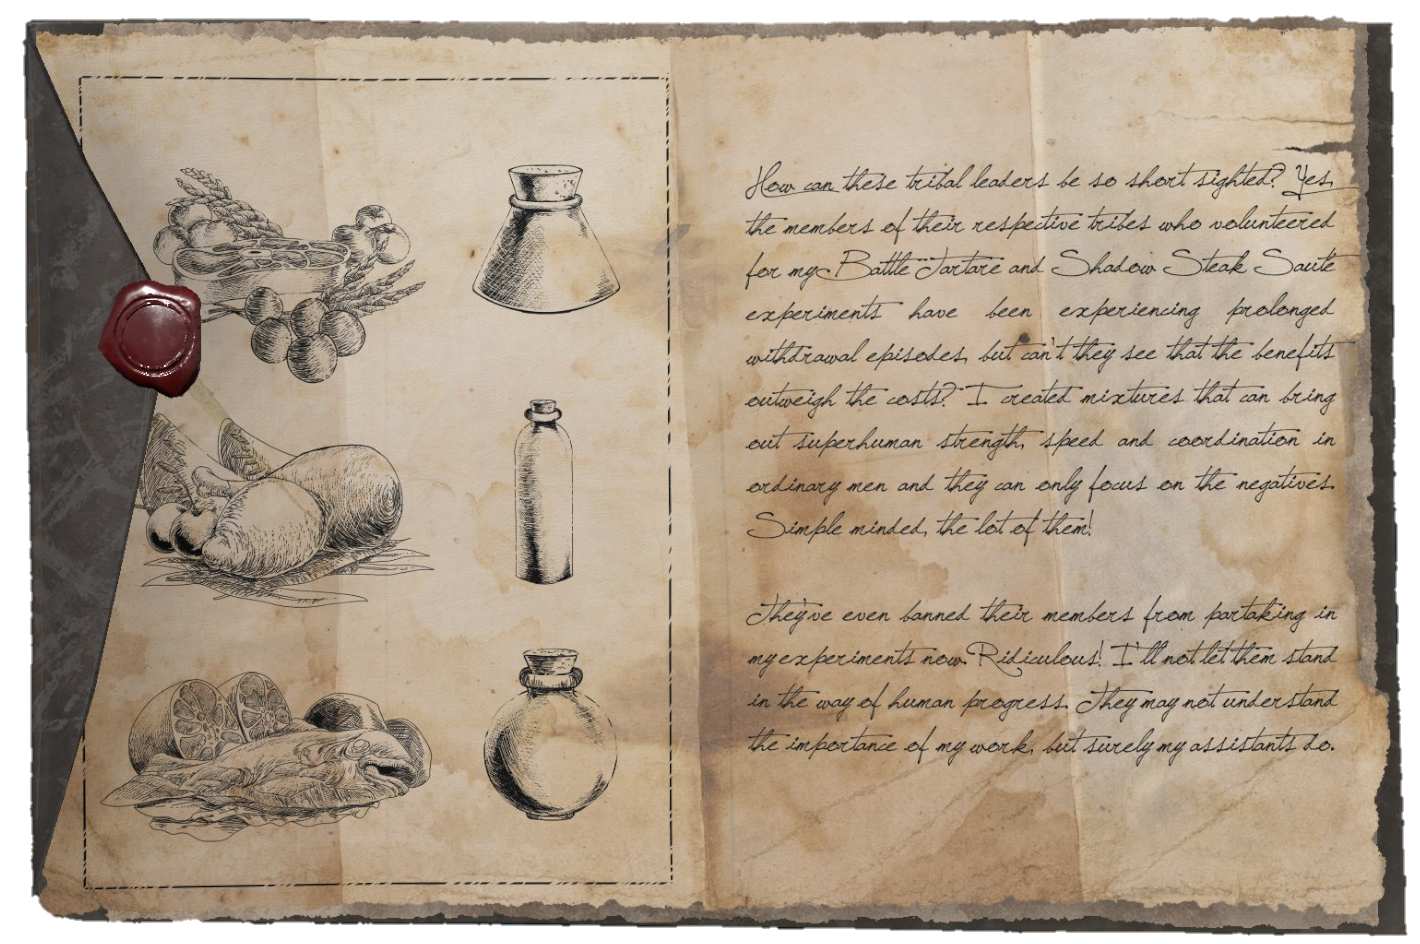 How can these tribal leaders be so short sighted? Yes,
the members of their respective tribes who volunteered
for my Battle Tartare and Shadow Steak Sauté
experiments have been experiencing prolonged
withdrawal episodes, but can't they see that the benefits
outweigh the costs? I created mixtures that can bring
out superhuman strength, speed and coordination in
ordinary men and they can only focus on the negatives.
Simple minded, the lot of them!
They've even banned their members from partaking in
my experiments now. Ridiculous! I'll not let them stand
in the way of human progress. They may not understand
the importance of my work, but surely my assistants do.